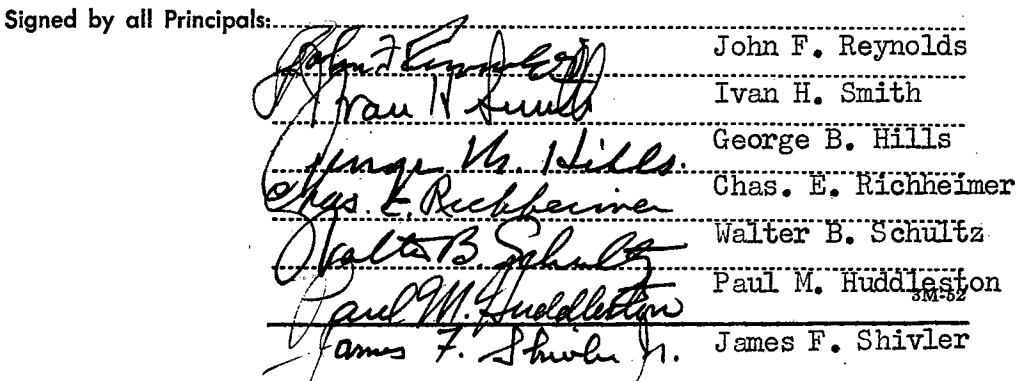 Signed by all Principals:
John F Reynolds John F. Reynolds
Ivan H Smith Ivan H. Smith
George B. Hills. George B. Hills
Chas. E. Richheimer Chas. E. Richheimer
Walter B. Schultz Walter B. Schultz
Paul M. Huddleston Paul M. Huddleston
3M-52
James F. Shivler Jr. James F. Shivler